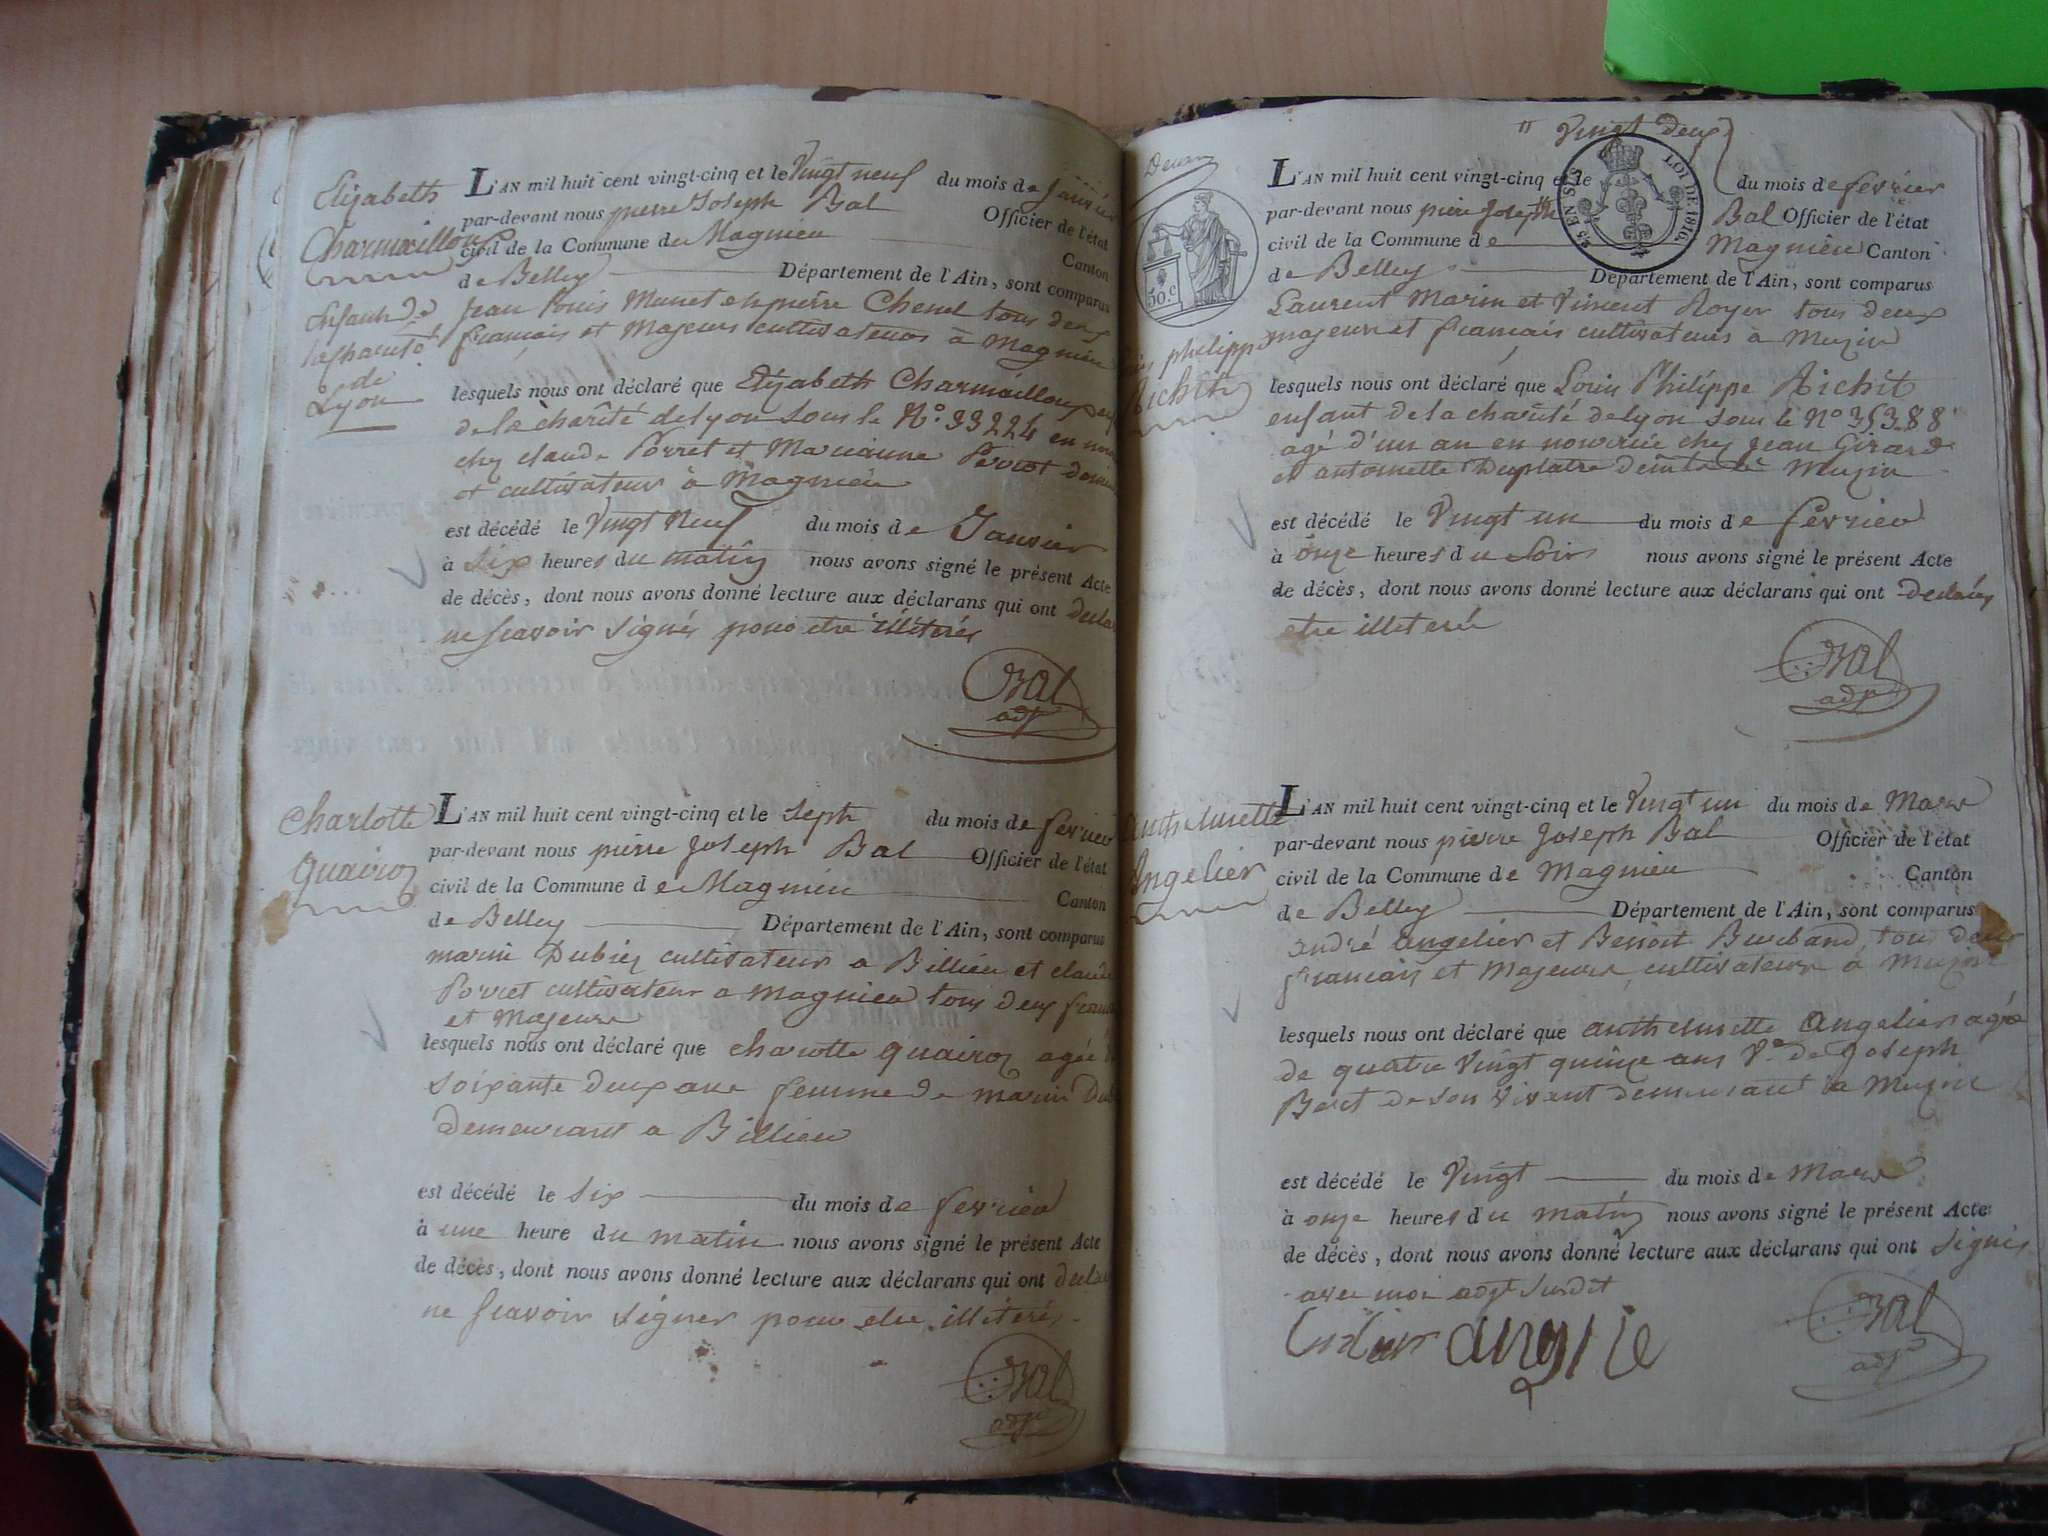 Elizabeth
Charmaillon
enfant de
la charité
de
Lyon
L'AN mil huit cent vingt-cinq et le Vingt neuf du mois de Janvier
par-devant nous pierre Joseph Bal Officier de l'état
civil de la Commune du Magnieu Canton
de Belley Département de l'Ain, sont comparus
Jean Louis Munet et pierre Chenel tous deux
francais et Majeurs cultivateurs à Magnieu
lesquels nous ont déclaré que Elizabeth Charmaillon
de la charité de lyon sous le N°. 33224 en
chez claude Porret et Marianne Perrot
et cultivateur à Magnieu
est décédé le Vingt Neuf du mois de Janvier
à six heures du matin nous avons signé le présent Acte
de décès, dont nous avons donné lecture aux déclarans qui ont
ne scavoir signés pour etre illiterés
Bal
adjt
Charlotte
quairoz
L'AN mil huit cent vingt-cinq et le Septh du mois de fevrier
par-devant nous pierre Joseph Bal Officier de l'état
civil de la Commune de Magnieu Canton
de Belley Département de l'Ain, sont comparus
marin Dubiez cultivateur a Billieu et claude
Porret cultivateur a Magnieu tous deux
et Majeurs
lesquels nous ont déclaré que charotte quairoz agée
soixante deux ans femme de marin
demeurant a Billieu
est décédé le Six du mois de fevrier
à une heure du matin nous avons signé le présent Acte
de décès, dont nous avons donné lecture aux déclarans qui ont
ne scavoir signer pour etre illiterés.
Bal
adjt
" Vingt deux
50.c
25 EN SUS
LOI DE 1816
philippe
Richit
L'AN mil huit cent vingt-cinq et le du mois de fevrier
par-devant nous pierre Joseph Bal Officier de l'état
civil de la Commune de Magnieu Canton
de Belley Département de l'Ain, sont comparus
Laurent Marin et Vincent Royer tous deux
majeur et francais cultivateurs à Muzin
lesquels nous ont déclaré que Louis Philippe Richit
enfant de la charité de lyon sous le N° 35388
agé d'un an en nourrice chez Jean Girard
et antoinette Duplatre Muzin
est décédé le Vingt un du mois de fevrier
à onze heures du soir nous avons signé le présent Acte
de décès, dont nous avons donné lecture aux déclarans qui ont declarés
etre illiteré
Bal
adjt
anthelmette
Angelier
L'AN mil huit cent vingt-cinq et le Vingt un du mois de Mars
par-devant nous pierre Joseph Bal Officier de l'état
civil de la Commune de Magnieu Canton
de Belley Département de l'Ain, sont comparus
andré angelier et Benoit Burband, tous deux
francais et Majeurs, cultivateurs a Muzin
lesquels nous ont déclaré que anthelmette angelier agée
de quatre Vingt quinze ans Ve. de Joseph
Beret de son vivant demeurant a Muzin
est décédé le Vingt du mois de Mars
à onze heures du matin nous avons signé le présent Acte
de décès, dont nous avons donné lecture aux déclarans qui ont signés
avec moi adjt susdit
Bal
adjt